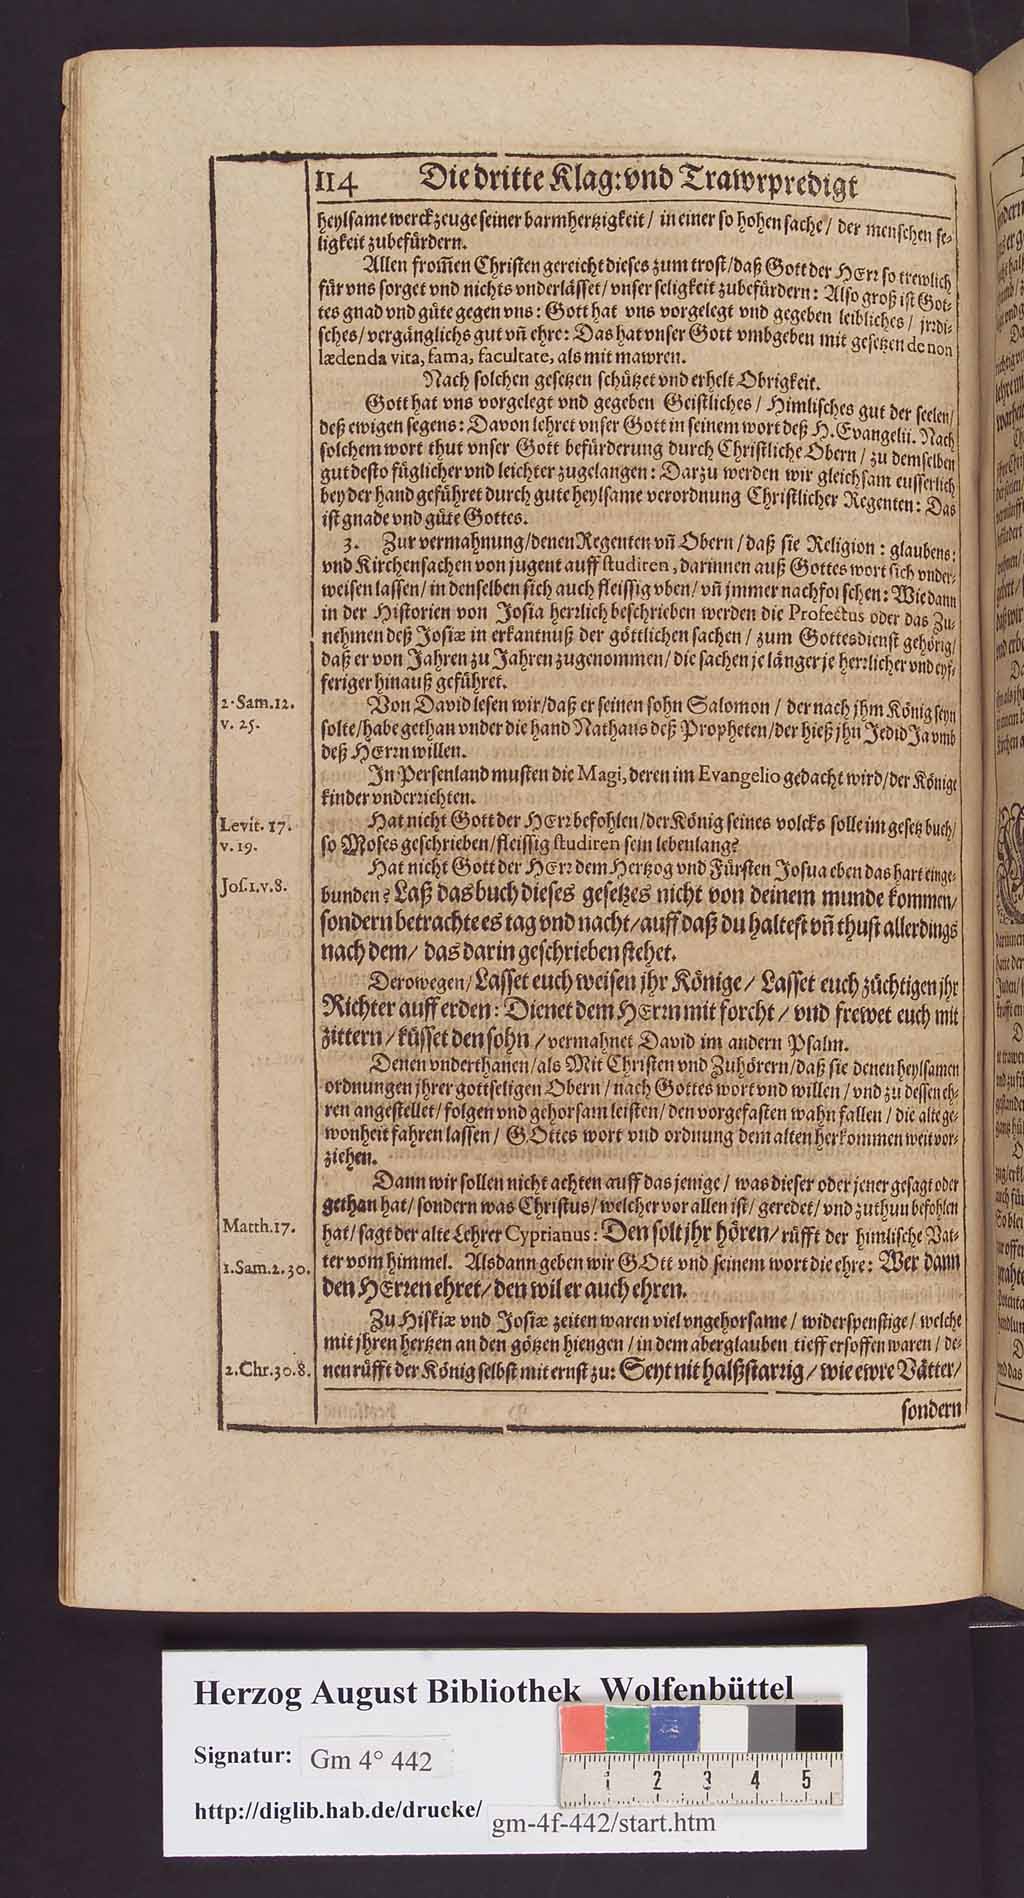 114 Die dritte Klag: vnd Trawrpredigt
heylsame werckzeuge seiner barmhertzigkeit / in einer so hohen sache / der menschen se-
ligkeit zubefürdern.
Allen from̃en Christen gereicht dieses zum trost / daß Gott der HErr so trewlich
für vns sorget vnd nichts vnderlässet / vnser seligkeit zubefürdern: Also groß ist Got-
tes gnad vnd güte gegen vns: Gott hat vns vorgelegt vnd gegeben leibliches / jrrdi-
sches / vergänglichs gut vñ ehre: Das hat vnser Gott vmbgeben mit gesetzen de non
lædenda vita, fama, facultate, als mit mawren.
Nach solchen gesetzen schützet vnd erhelt Obrigkeit.
Gott hat vns vorgelegt vnd gegeben Geistliches / Himlisches gut der seelen /
deß ewigen segens: Davon lehret vnser Gott in seinem wort deß H. Evangelii. Nach
solchem wort thut vnser Gott befürderung durch Christliche Obern / zu demselben
gut desto füglicher vnd leichter zugelangen: Darzu werden wir gleichsam eusserlich
bey der hand geführet durch gute heylsame verordnung Christlicher Regenten: Das
ist gnade vnd güte Gottes.
3. Zur vermahnung / denen Regenten vñ Obern / daß sie Religion: glaubens:
vnd Kirchensachen von jugent auff studiren, darinnen auß Gottes wort sich vnder-
weisen lassen / in denselben sich auch fleissig vben / vñ jmmer nachforschen: Wie dann
in der Historien von Josia herrlich beschrieben werden die Profectus oder das Zu-
nehmen deß Josiæ in erkantnuß der göttlichen sachen / zum Gottesdienst gehörig /
daß er von Jahren zu Jahren zugenommen / die sachen je länger je herrlicher vnd eyf-
feriger hinauß geführet.
2. Sam. 12.
v. 25.
Von David lesen wir / daß er seinen sohn Salomon / der nach jhm König seyn
solte / habe gethan vnder die hand Nathans deß Propheten / der hieß jhn Jedid Ja vmb
deß HErrn willen.
In Persenland musten die Magi, deren im Evangelio gedacht wird / der Könige
kinder vnderrichten.
Levit. 17.
v. 19.
Hat nicht Gott der HErr befohlen / der König seines volcks solle im gesetzbuch /
so Moses geschrieben / fleissig studiren sein lebenlang?
Jos. 1. v. 8.
Hat nicht Gott der HErr dem Hertzog vnd Fürsten Josua eben das hart einge-
bunden? Laß das buch dieses gesetzes nicht von deinem munde kommen /
sondern betrachte es tag vnd nacht / auff daß du haltest vñ thust allerdings
nach dem / das darin geschrieben stehet.
Derowegen / Lasset euch weisen jhr Könige / Lasset euch züchtigen jhr
Richter auff erden: Dienet dem HErrn mit forcht / vnd frewet euch mit
zittern / küsset den sohn / vermahnet David im andern Psalm.
Denen vnderthanen / als Mit Christen vnd Zuhörern / daß sie denen heylsamen
ordnungen jhrer gottseligen Obern / nach Gottes wort vnd willen / vnd zu dessen eh-
ren angestellet / folgen vnd gehorsam leisten / den vorgefasten wahn fallen / die alte ge-
wonheit fahren lassen / GOttes wort vnd ordnung dem alten herkommen weit vor-
ziehen.
Dann wir sollen nicht achten auff das jenige / was dieser oder jener gesagt oder
gethan hat / sondern was Christus / welcher vor allen ist / geredet / vnd zuthun befohlen
Matth. 17.
hat / sagt der alte Lehrer Cyprianus: Den solt jhr hören / rüfft der himlische Vat-
1. Sam. 2. 30.
ter vom himmel. Alsdann geben wir GOtt vnd seinem wort die ehre: Wer dann
den HErren ehret / den wil er auch ehren.
Zu Hiskiæ vnd Josiæ zeiten waren viel vngehorsame / widerspenstige / welche
mit jhren hertzen an den götzen hiengen / in dem aberglauben tieff ersoffen waren / de-
2. Chr. 30. 8.
nen rüfft der König selbst mit ernst zu: Seyt nit halßstarrig / wie ewre Vätter /
sondern
Herzog August Bibliothek Wolfenbüttel
Signatur: Gm 4° 442
http://diglib.hab.de/drucke/ gm-4f-442/start.htm
1 2 3 4 5